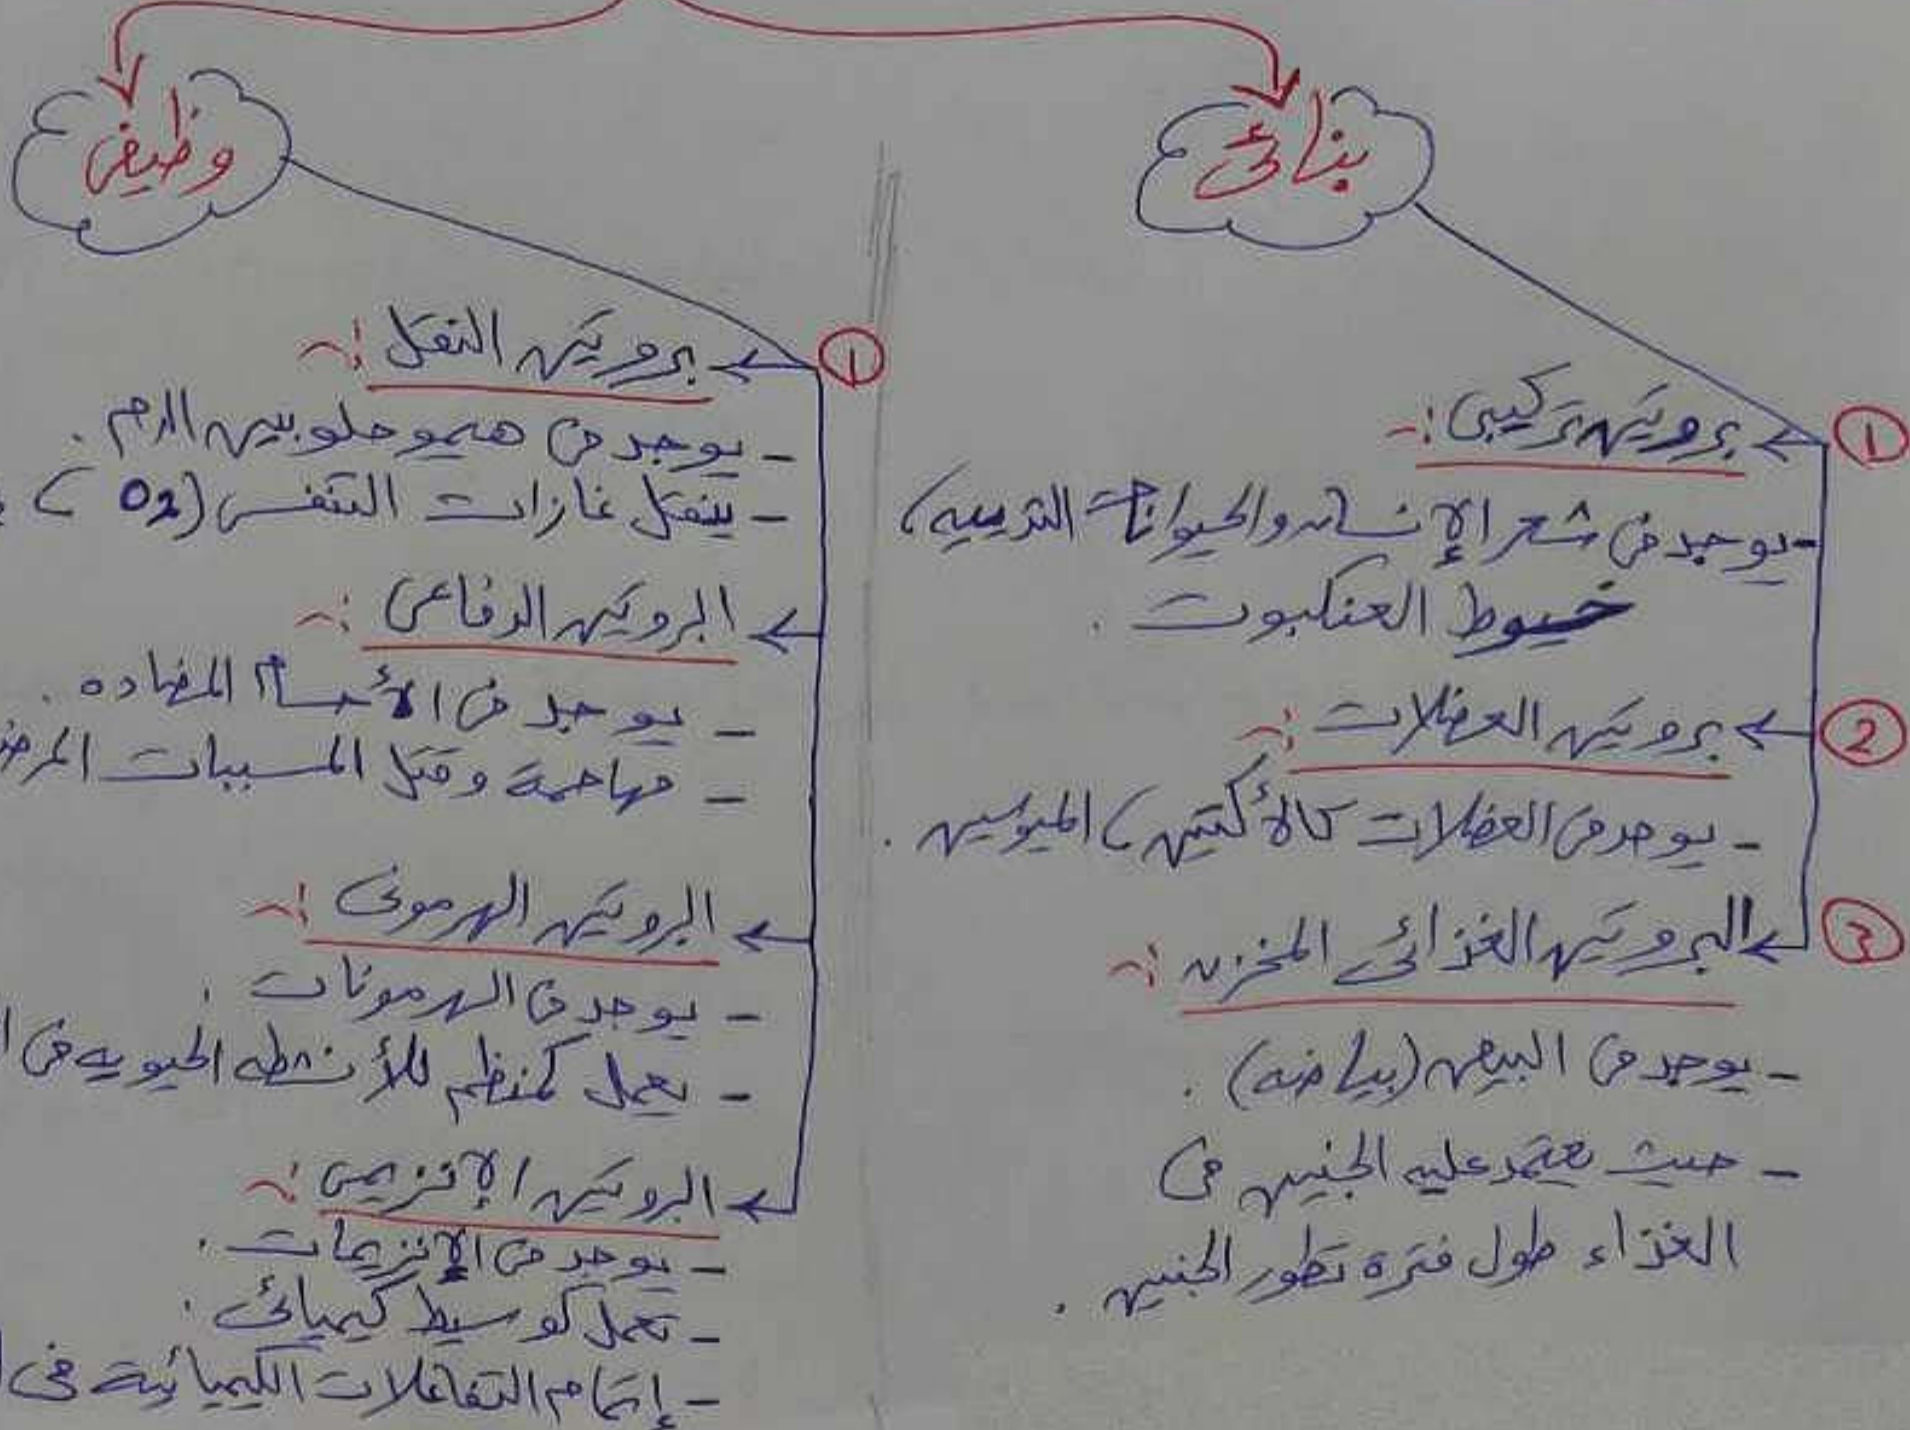 بنائى
① بروتين تركيبى :-
- يوجد فى شعر الإنسان والحيوانات الثديية،
خيوط العنكبوت .
② بروتين العضلات :-
- يوجد فى العضلات كالأكتين، الميوسين .
③ البروتين الغذائى المخزن :-
- يوجد فى البيض (بياضه) .
- حيث يعتمد عليه الجنين فى
الغذاء طول فترة تطور الجنين .
وظيفى
① بروتين النقل :-
- يوجد فى هيموجلوبين الدم .
- ينقل غازات التنفس (O2 ،
البروتين الدفاعى :-
- يوجد فى الأجسام المضاده .
- مهاجمة وقتل المسببات
البروتين الهرمونى :-
- يوجد فى الهرمونات .
- يعمل كمنظم للأنشطه الحيويه فى
البروتين الإنزيمى :-
- يوجد فى الإنزيمات .
- تعمل كوسيط كيميائى .
- إتمام التفاعلات الكيميائية فى